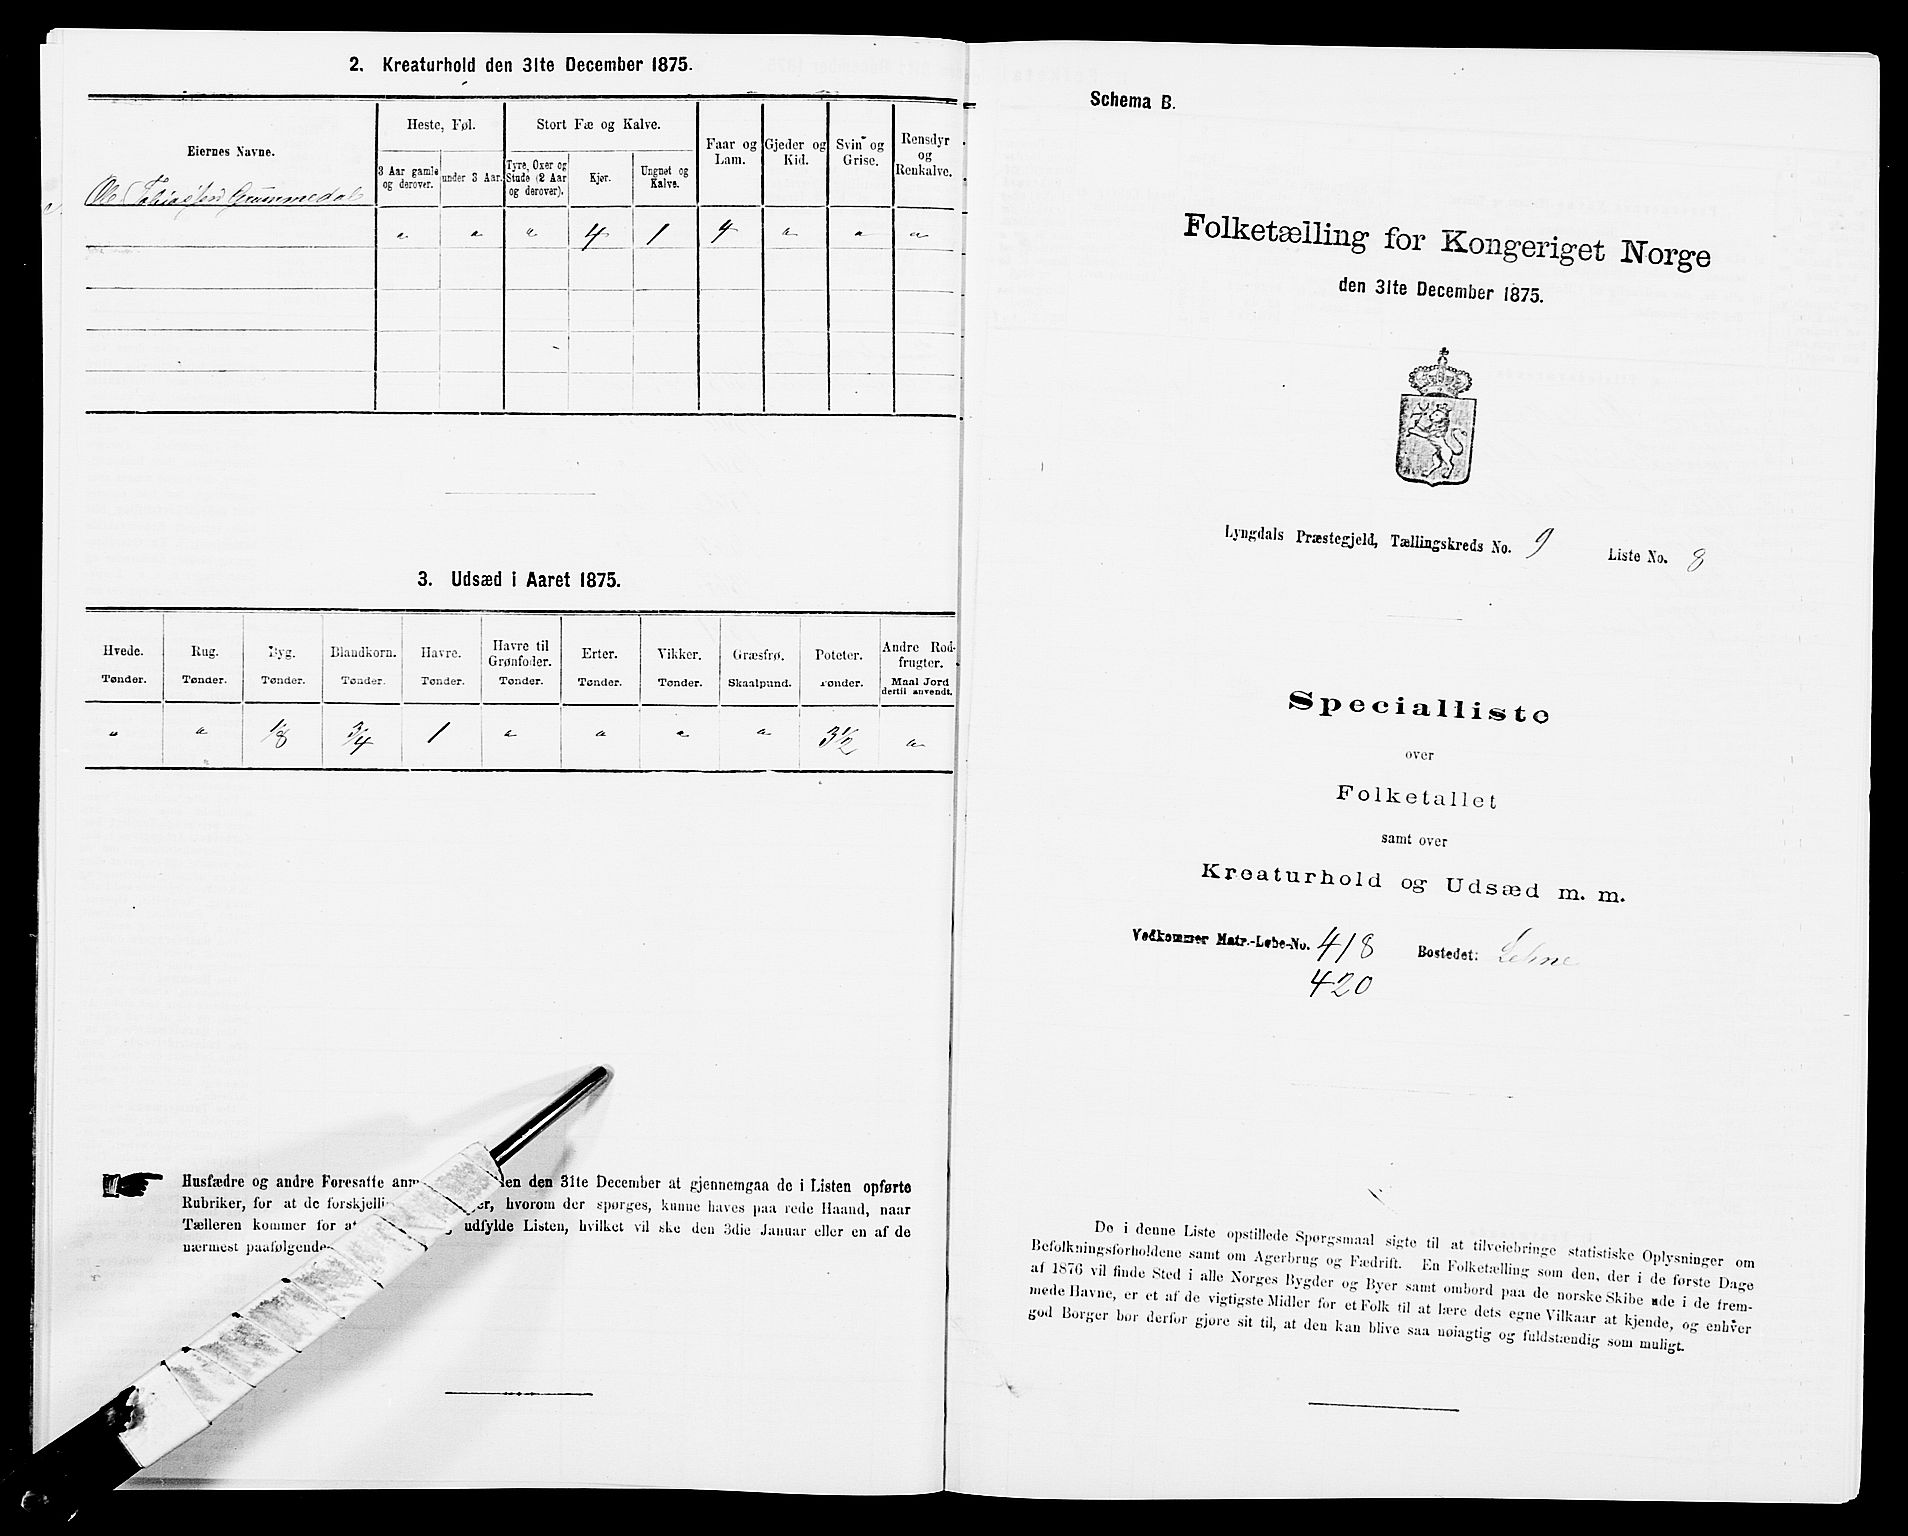 2. Kreaturhold den 31te December 1875.
Eiernes Navne.
Heste, Føl.
Stort Fæ og Kalve.
3 Aar gamle og derover.
under 3 Aar.
Tyre, Oxer og Stude (2 Aar og derover).
Kjør.
Ungnøt og Kalve.
Faar og Lam.
Gjeder og Kid.
Svin og Grise.
Rensdyr og Renkalve.
Ole Tobiassen Grummedal
" " " 4 1 4 " " "
3. Udsæd i Aaret 1875.
Hvede. Rug. Byg. Blandkorn. Havre. Havre til Grønfoder. Erter. Vikker. Græsfrø. Poteter. Andre Rodfrugter.
Tønder. Tønder. Tønder. Tønder. Tønder. Tønder. Tønder. Tønder. Skaalpund. Tønder. Maal Jord dertil anvendt.
" " 1/8 3/4 1 " " " " 3 1/2 "
Husfædre og andre Foresatte anm len den 31te December at gjennemgaa de i Listen opførte
Rubriker, for at de forskjelli er, hvorom der spørges, kunne haves paa rede Haand, naar
Tælleren kommer for at udfylde Listen, hvilket vil ske den 3die Januar eller en af de
nærmest paafølgende
Schema B.
Folketælling for Kongeriget Norge
den 31te December 1875.
Lyngdals Præstegjeld, Tællingskreds No. 9 Liste No. 8
Specialliste
over
Folketallet
samt over
Kreaturhold og Udsæd m. m.
Vedkommer Matr.-Løbe-No. 418 Bostedet: Lehne
420
De i denne Liste opstillede Spørgsmaal sigte til at tilveiebringe statistiske Oplysninger om
Befolkningsforholdene samt om Agerbrug og Fædrift. En Folketælling som den, der i de første Dage
af 1876 vil finde Sted i alle Norges Bygder og Byer samt ombord paa de norske Skibe ude i de frem-
mede Havne, er et af de vigtigste Midler for et Folk til at lære dets egne Vilkaar at kjende, og enhver
god Borger bør derfor gjøre sit til, at den kan blive saa nøiagtig og fuldstændig som muligt.